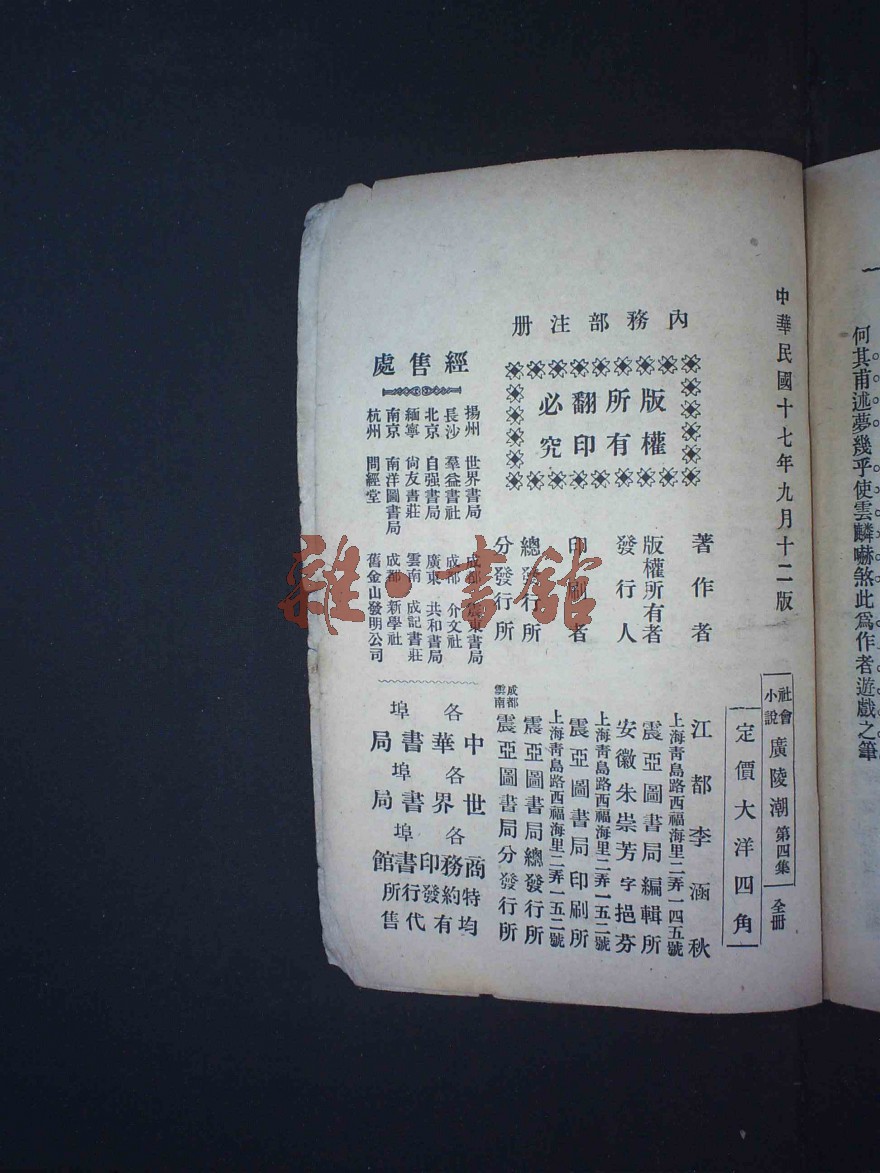 何其甫述夢幾乎使雲麟嚇煞此爲作者遊戲之筆
中華民國十七年九月十二版
社會小說 廣陵潮 第四集 全冊
定價大洋四角
內務部注册
版權所有
翻印必究
著作者 江都李涵秋
版權所有者 上海靑島路西福海里二弄一四五號 震亞圖書局編輯所
發行人 安徽朱崇芳字挹芬
印刷者 上海靑島路西福海里二弄一五二號 震亞圖書局印刷所
總發行所 上海靑島路西福海里二弄一五二號 震亞圖書局總發行所
分發行所 成都 雲南 震亞圖書局分發行所
經售處
揚州 世界書局 成都 東書局
長沙 羣益書社 成都 介文社
北京 自强書局 廣東 共和書局
緬寧 尙友書莊 雲南 成記書莊
南京 南洋圖書局 成都 新學社
杭州 問經堂 舊金山發明公司
各埠中華書局
各埠世界書局
各埠商務印書館
特約發行所
均有代售
雜·書館